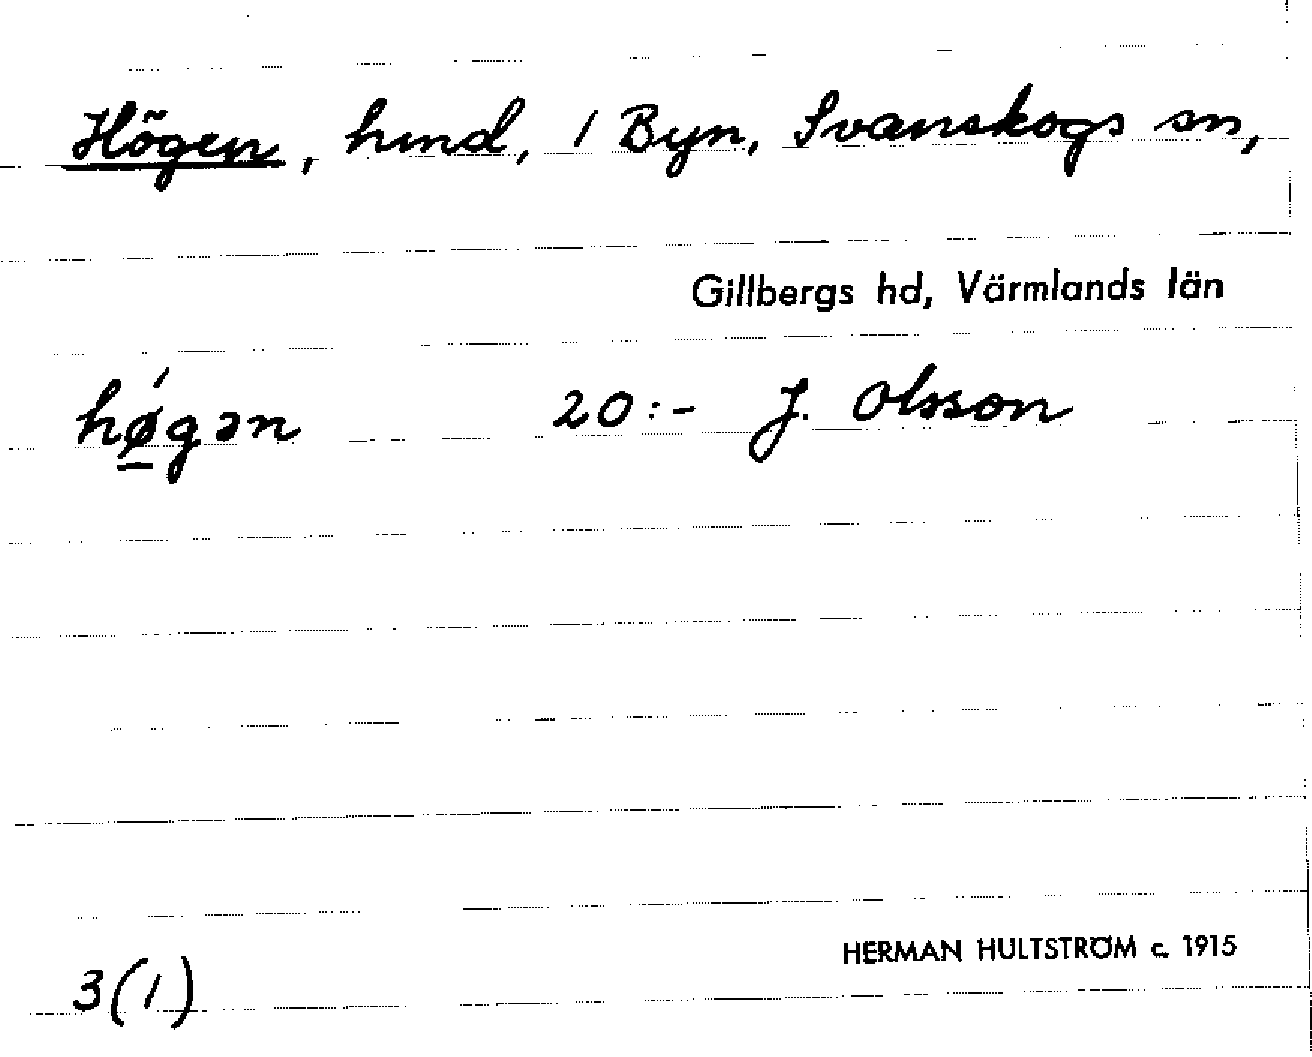 Högen, hmd, 1 Byn, Svanskogs sn,
Gillbergs hd, Värmlands län
hǿ̲gən 20:- J. Olsson
HERMAN HULTSTRÖM c. 1915
3(1)